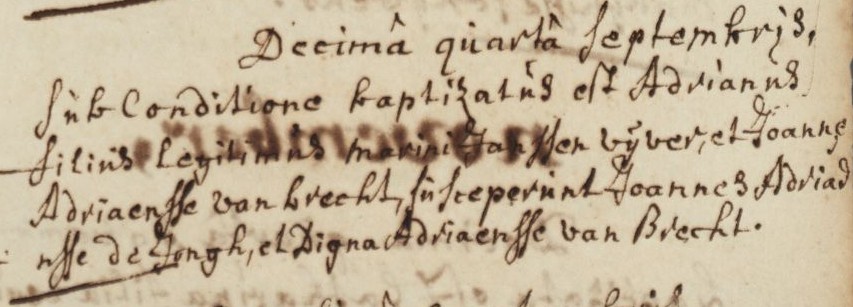 Decimâ quartâ septembris,
sub Conditione baptizatus est Adrianus
filius legitimus marini Janssen vÿver, et Joanne
Adriaensse van brecht, susceperunt Joannes Adria
nsse de Jongh, et Digna Adriaensse van Brecht.